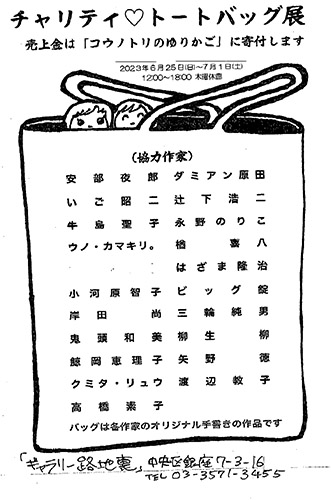 チャリティ♡トートバッグ展
売上金は「コウノトリのゆりかご」に寄付します
2023年6月25日(日)～7月1日(土)
12:00～18:00 木曜休廊
(協力作家)
安部夜郎 ダミアン原田
いご昭二 辻下浩二
牛島聖子 永野のりこ
ウノ・カマキリ。 楢喜八
はざま隆治
小河原智子 ビッグ錠
岸田尚 三輪純男
鬼頭和美 柳生柳
鯨岡恵理子 矢野徳
クミタ・リュウ 渡辺敦子
高橋素子
バッグは各作家のオリジナル手書きの作品です
「ギャラリー路地裏」 中央区銀座7-3-16
TEL 03-3571-3455